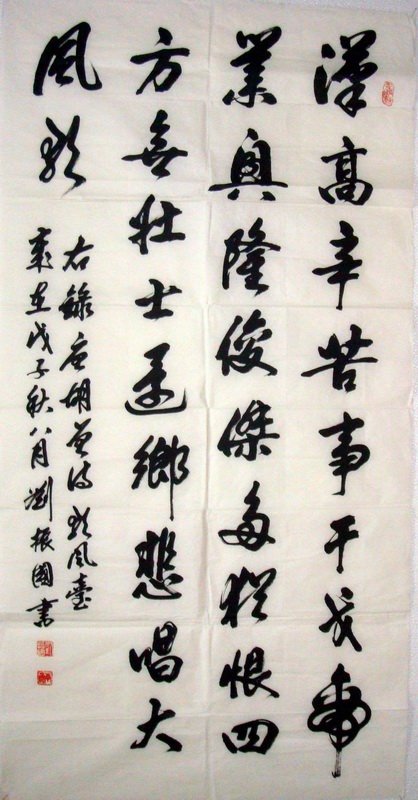 漢高辛苦事干戈帝
業興隆俊傑多猶恨四
方無壯士還鄉悲唱大
風歌
右錄唐胡曾詩歌風臺
歲在戊子秋八月劉振國書